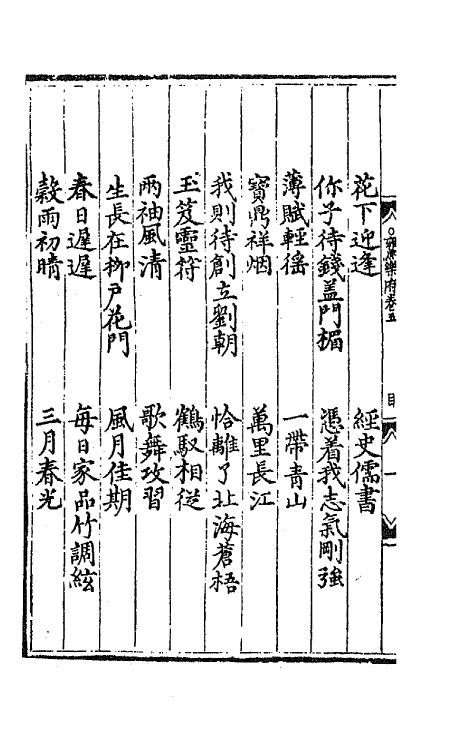 雍熙樂府卷五
目
一
花下迎逢
經史儒書
你子待錢蓋門楣
憑着我志氣剛強
薄賦輕徭
一帶青山
寶鼎祥烟
萬里長江
我則待創立劉朝
恰離了北海蒼梧
玉笈靈符
鶴馭相從
兩袖風清
歌舞攻習
生長在柳戶花門
風月佳期
春日遲遲
每日家品竹調絃
穀雨初晴
三月春光